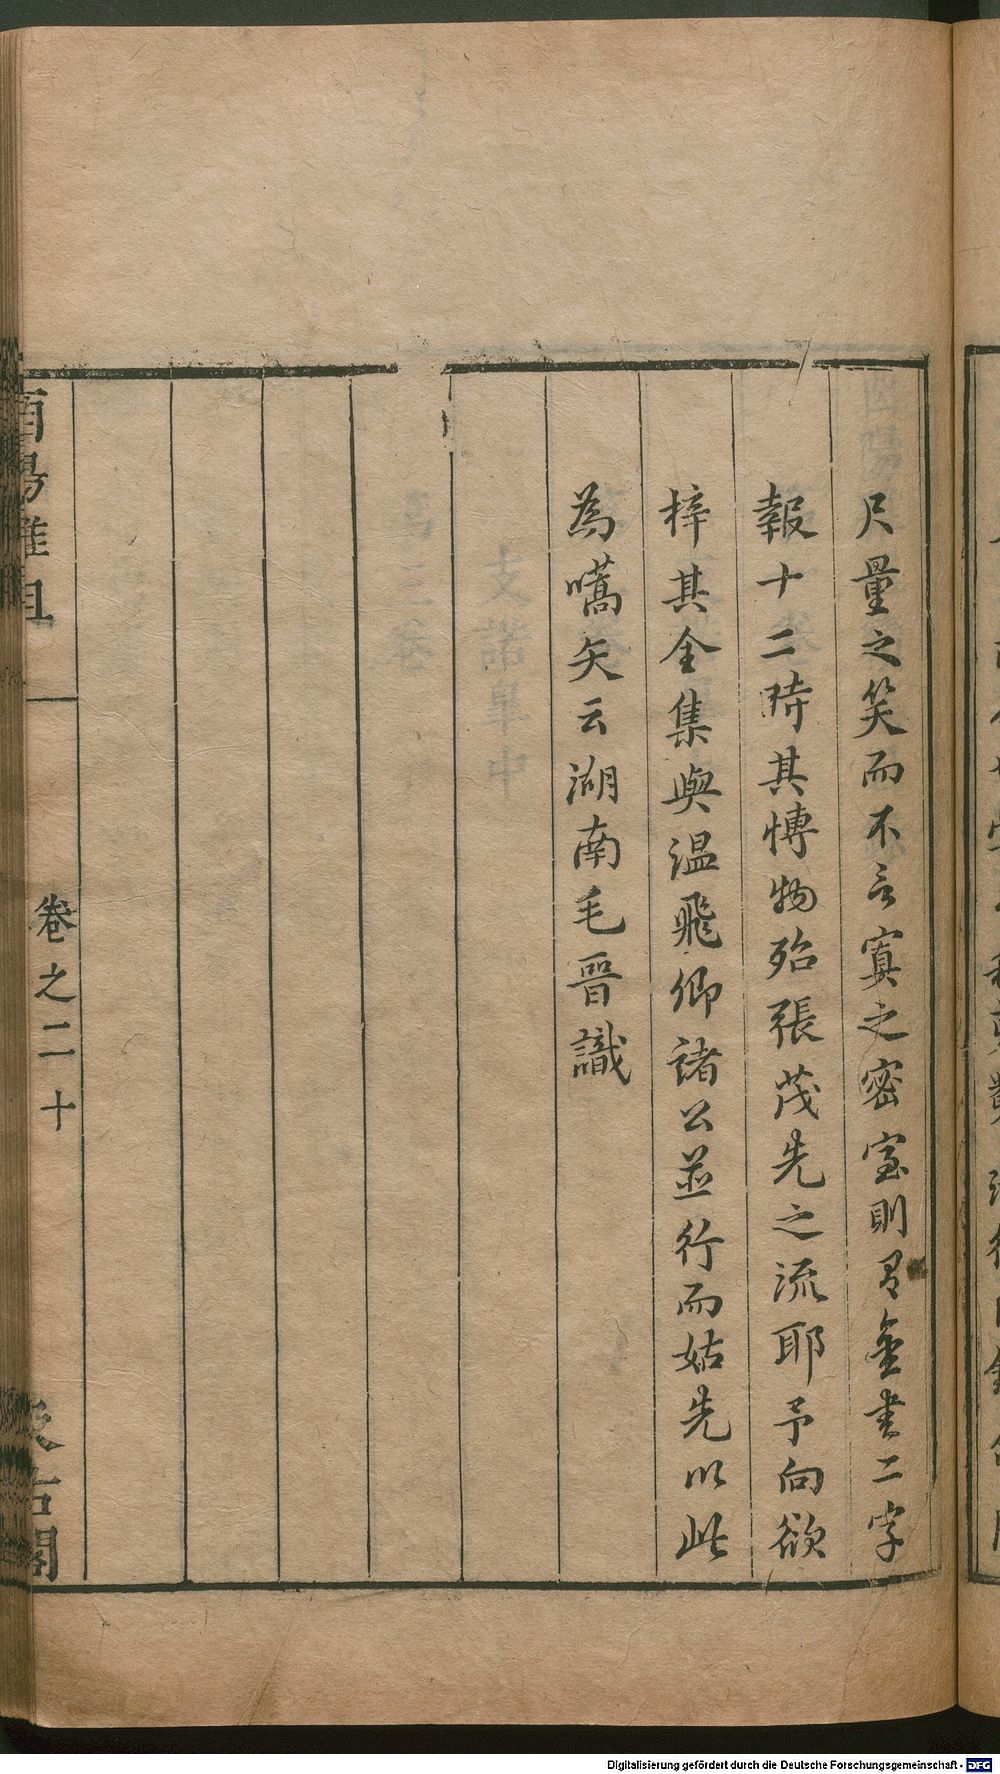 尺量之笑而不言寘之密室則有金書二字
報十二時其愽物殆張茂先之流耶予向欲
梓其全集與温飛卿諸公並行而姑先以此
為嚆矢云湖南毛晉識
酉陽雜俎
卷之二十
汲古閣
Digitalisierung gefördert durch die Deutsche Forschungsgemeinschaft - DFG